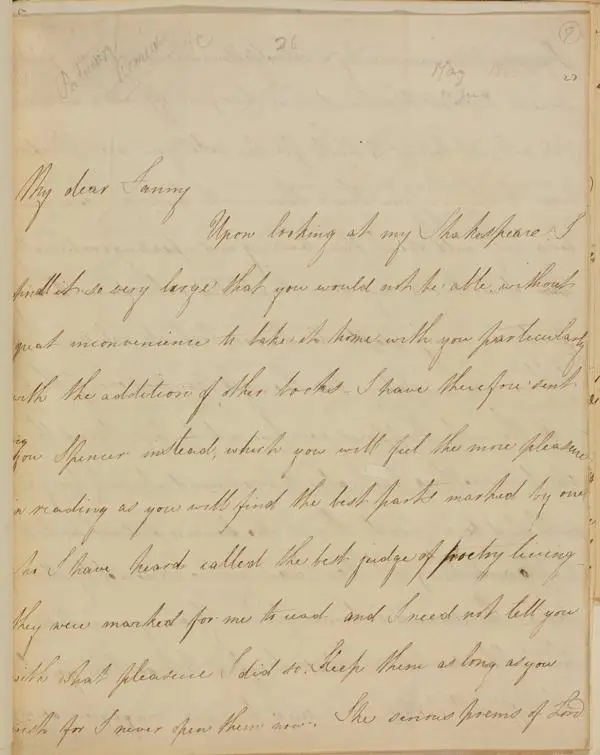 26
7
May
27
My dear Fanny
Upon looking at my Shakespeare I
find it so very large that you would not be able, without
great inconvenience to take it home with you particularly
with the addition of other books - I have therefore sent
you Spencer instead, which you will feel the more pleasure
in reading as you will find the best parts marked by one
who I have heard called the best judge of poetry living -
they were marked for me to read and I need not tell you
with what pleasure I did so. Keep them as long as you
wish for I never open them now. The serious poems of Lord